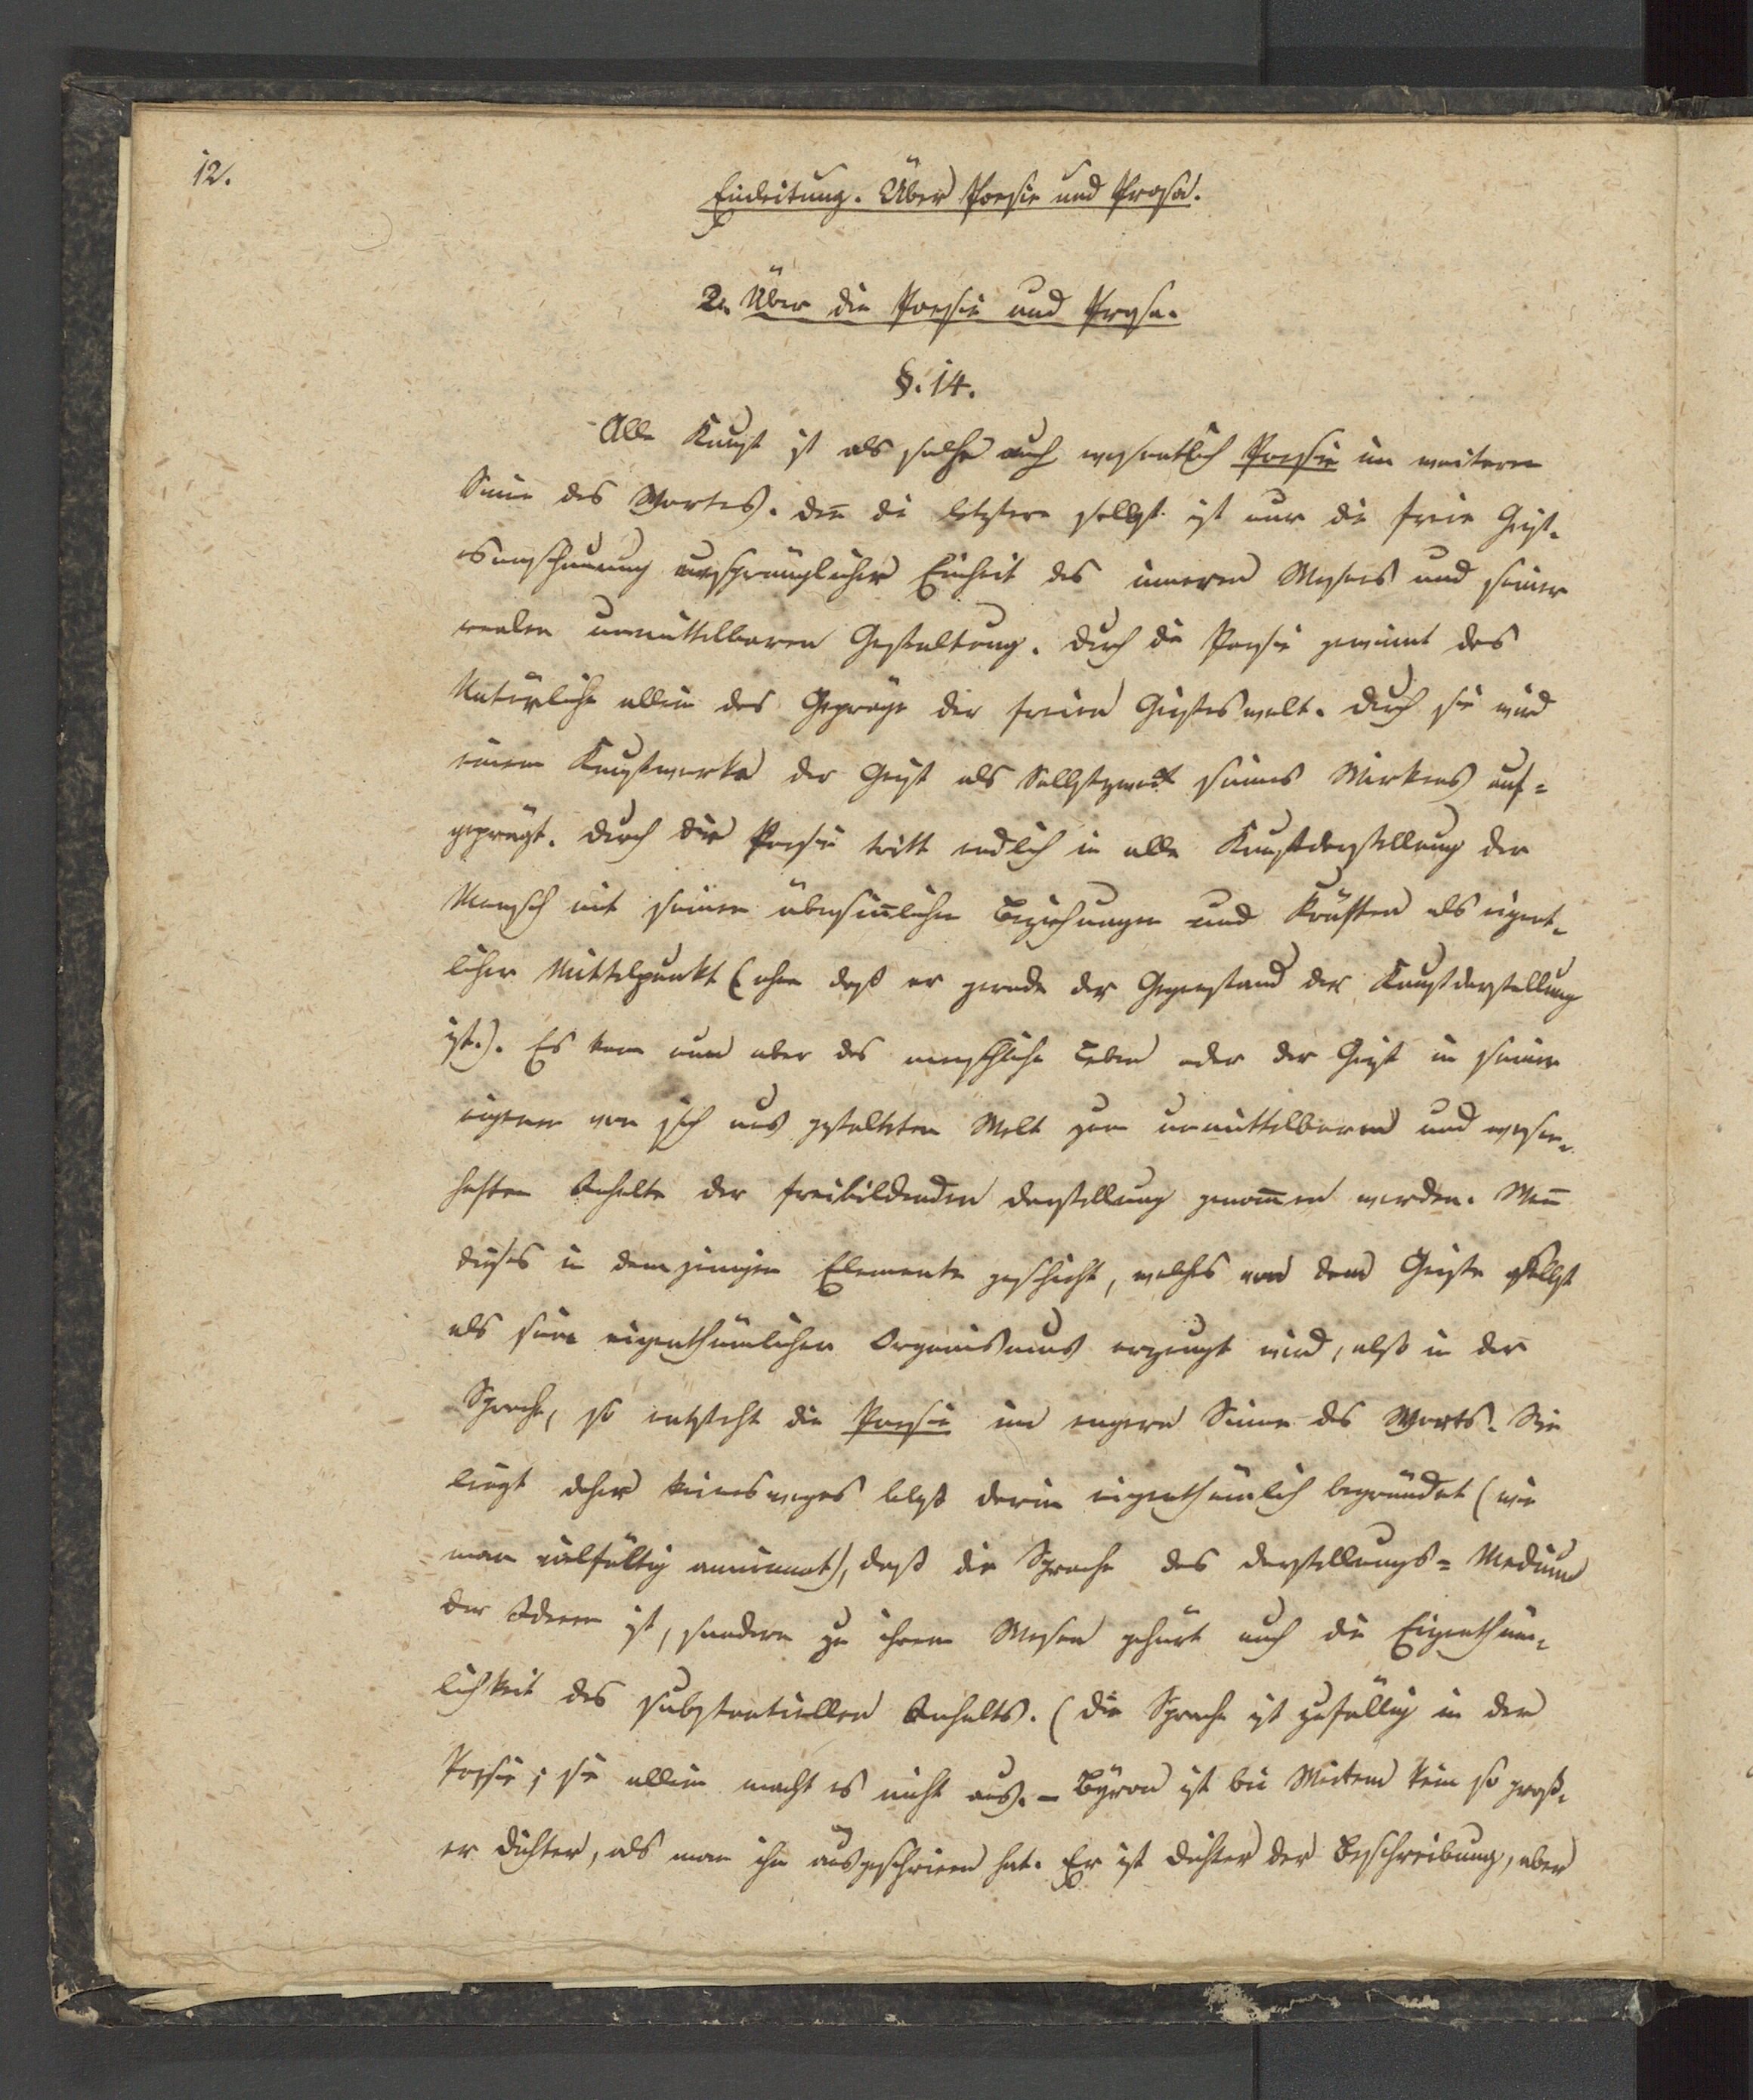 12.
Einleitung. Über Poesie und Prosa.
2. Über die Poesie und Prosa.
§. 14.
Alle Kunst ist als solche auch wesentlich Poesie im weitern
Sinne des Wortes. Den̅ die letztere selbst ist nur die freie Geist-
esanschauung ursprünglicher Einheit des inneren Wesens und seiner
realen unmittelbaren Gestaltung. Durch die Poesie gewinnt das
Natürliche allein das Gepräge der freien Geisteswelt. Durch sie wird
einem Kunstwerke der Geist als Selbstzweck seines Wirkens auf=
geprägt. Durch die Poesie tritt endlich in alle Kunstdarstellung der
Mensch mit seinen übersin̅lichen Beziehungen und Kräften als eigent-
licher Mittelpunkt (ohne daß er gerade der Gegenstand der Kunstdarstellung
ist.). Es kann nun aber das menschliche Leben oder der Geist in seiner
eigenen von sich aus gestalteten Welt zum unmittelbaren und wesen-
haften Inhalte der freibildenden Darstellung genom̅en werden. Wen̅
dieses in demjenigen Elemente geschieht, welches von dem Geiste selbst
als sein eigenthümlicher Organismus erzeugt wird, also in der
Sprache, so entsteht die Poesie im engern Sinne des Worts. Sie
liegt daher keinesweges bloß darin eigenthümlich begründet (wie
man vielfältig annimmt), daß die Sprache das Darstellungs=Medium
der Ideen ist, sondern zu ihrem Wesen gehört auch die Eigenthüm-
lichkeit des substantiellen Inhalts. (Die Sprache ist zufällig in der
Poesie; sie allein macht es nicht aus. – Byron ist bei Weitem kein so groß-
er Dichter, als man ihn ausgeschrieen hat. Er ist Dichter der Beschreibung, aber